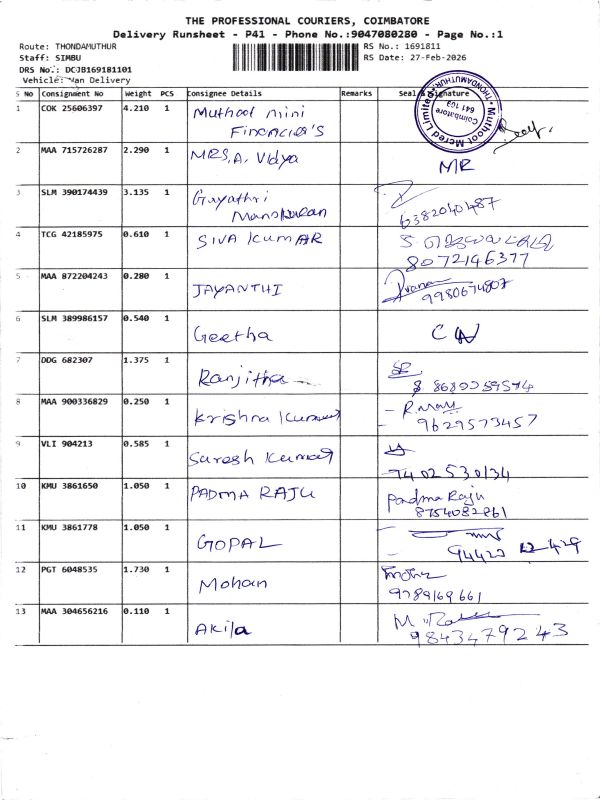 THE PROFESSIONAL COURIERS, COIMBATORE
Delivery Runsheet - P41 - Phone No.:9047080280 - Page No.:1
Route: THONDAMUTHUR
RS No.: 1691811
Staff: SIMBU
RS Date: 27-Feb-2026
DRS No.: DCJB169181101
Vehicle: Van Delivery
S No Consignment No Weight PCS Consignee Details Remarks Seal & Signature
Muthoot Mcred Limited
THONDAMUTHUR
Coimbatore
641 109
1 COK 25606397 4.210 1 Muthoot mini
Financier's
2 MAA 715726287 2.290 1 MRS.A. Vidya MR
3 SLM 390174439 3.135 1 Gayathri
Manoharan 6382040487
4 TCG 42185975 0.610 1 SIVA KUMAR
8072146377
5 MAA 872204243 0.280 1 JAYANTHI
9980674807
6 SLM 389986157 0.540 1 Geetha
7 DDG 682307 1.375 1 Ranjitha
8 MAA 900336829 0.250 1 Krishna Kumar
9629573457
9 VLI 904213 0.585 1 Suresh Kumar
7402530134
10 KMU 3861650 1.050 1 PADMA RAJU Padma Raju
8754082861
11 KMU 3861778 1.050 1 GOPAL
12 PGT 6048535 1.730 1 Mohan
9789169661
13 MAA 304656216 0.110 1 Akila
9843479243